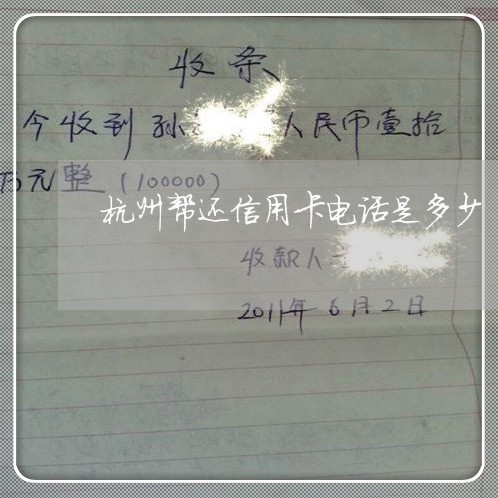 收条
今收到孙 人民币壹拾
万元整(100000)
杭州帮还信用卡电话是多少
收款人
2011年6月2日